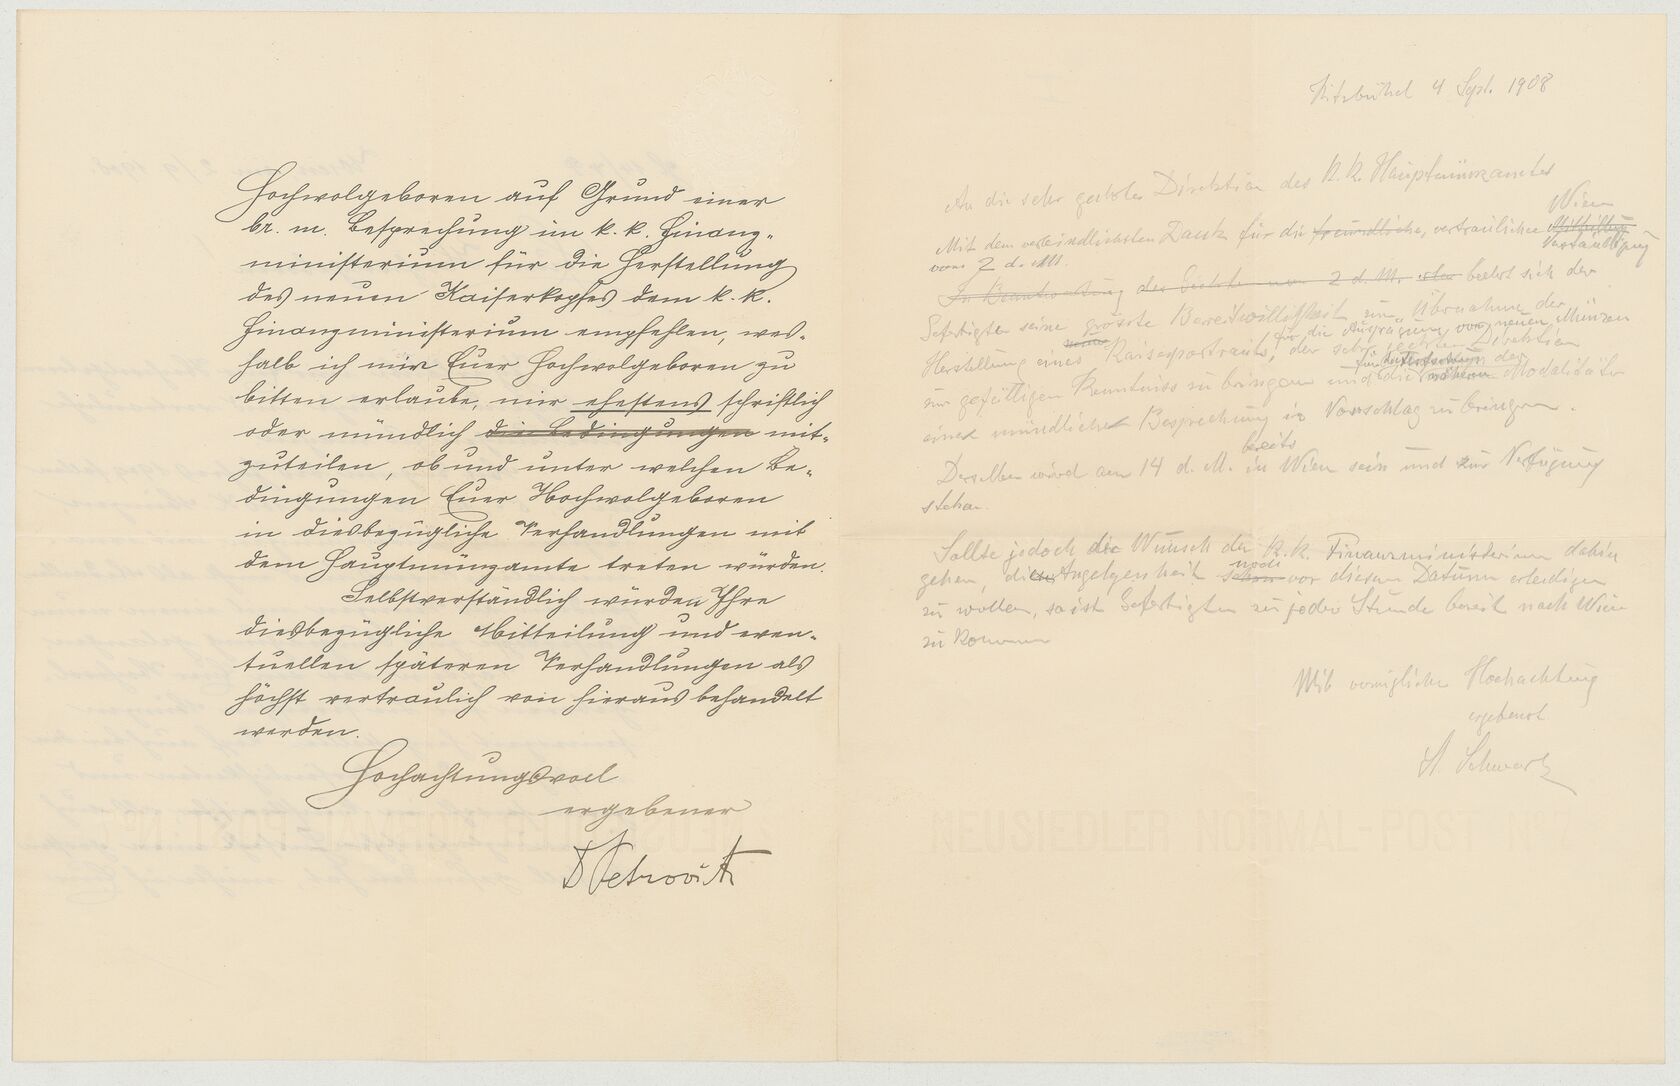 Hochwolgeboren auf Grund einer
br. m. Besprechung im k. k. Finanz-
ministerium für die Herstellung
des neuen Kaiserkopfes dem k. k.
Finanzministerium empfehlen, wes-
halb ich mir Euer Hochwolgeboren zu
bitten erlaube, mir ehestens schriftlich
oder mündlich die Bedingungen mit-
zuteilen, ob und unter welchen Be-
dingungen Euer Hochwolgeboren
in diesbezügliche Verhandlungen mit
dem Hauptmünzamte treten würden.
Selbstverständlich würden Ihre
diesbezügliche Mitteilung und even-
tuellen späteren Verhandlungen als
höchst vertraulich von hieraus behandelt
werden.
Hochachtungsvoll
ergebener
Petrovits
Kitzbühel 4 Sept. 1908
An die sehr geehrte Direktion des K. K. Hauptmünzamtes
Wien
Mit dem verbindlichsten Dank für die freundliche, vertraulichen Mitteilung
Verständigung
vom 2 d. M.
In Beantwortung der Briefe vom 2 d. M. beehrt sich der
Gefertigte seine grösste Bereitwilligkeit zur Übernahme der
für die Ausprägung von neuen Münzen
Herstellung eines Kaiserportraits, der sehr geehrten Direktion
für der
zur gefälligen Kenntniss zu bringen und die näheren Modalitäten
einer mündlichen Besprechung in Vorschlag zu bringen.
bereits
Derselbe wird am 14 d. M. in Wien sein und zur Verfügung
stehen.
Sollte jedoch der Wunsch des K. K. Finanzministerium dahin
noch
gehen, diese Angelegenheit schon vor diesem Datum erledigen
zu wollen, so ist Gefertigter zu jeder Stunde bereit nach Wien
zu kommen
Mit vorzüglicher Hochachtung
ergebenst
St. Schwartz
NEUSIEDLER NORMAL-POST Nº 7